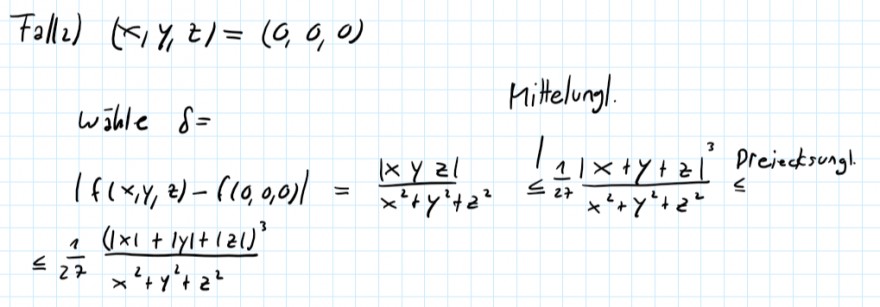 Fall 2) (x, y, z) = (0, 0, 0)
Mittelungl.
Wähle δ=
|f(x,y,z) - f(0,0,0)| = |x y z| / (x² + y² + z²) ≤ 1/27 |x + y + z|³ / (x² + y² + z²) Dreiecksungl. ≤
≤ 1/27 (|x| + |y| + |z|)³ / (x² + y² + z²)